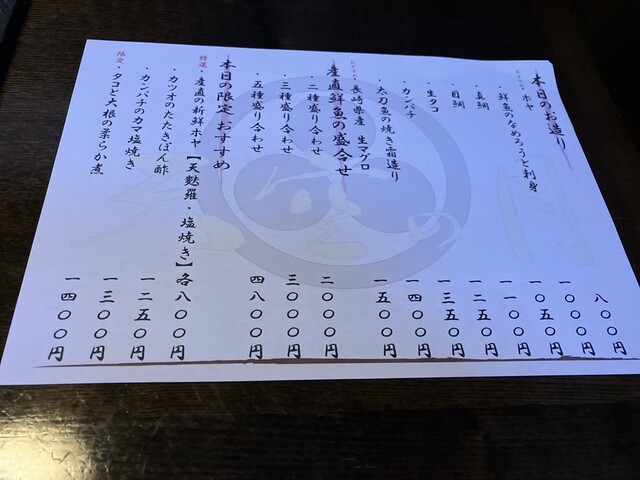 本日のお造り
おすすめ・ホヤ 八〇〇円
・鮮魚のなめろうと刺身 一〇〇〇円
・真鯛 一〇五〇円
・目鯛 一一〇〇円
・生タコ 一二五〇円
・カンパチ 一三五〇円
・太刀魚の焼き霜造り 一四〇〇円
おすすめ・長崎県産 生マグロ 一五〇〇円
産直鮮魚の盛合せ
・二種盛り合わせ 二〇〇〇円
・三種盛り合わせ 三〇〇〇円
・五種盛り合わせ 四八〇〇円
本日の限定おすすめ
特選・産直の新鮮ホヤ【天麩羅・塩焼き】各八〇〇円
・カツオのたたきぽん酢 一二五〇円
・カンパチのカマ塩焼き 一三〇〇円
限定・タコと大根の柔らか煮 一四〇〇円